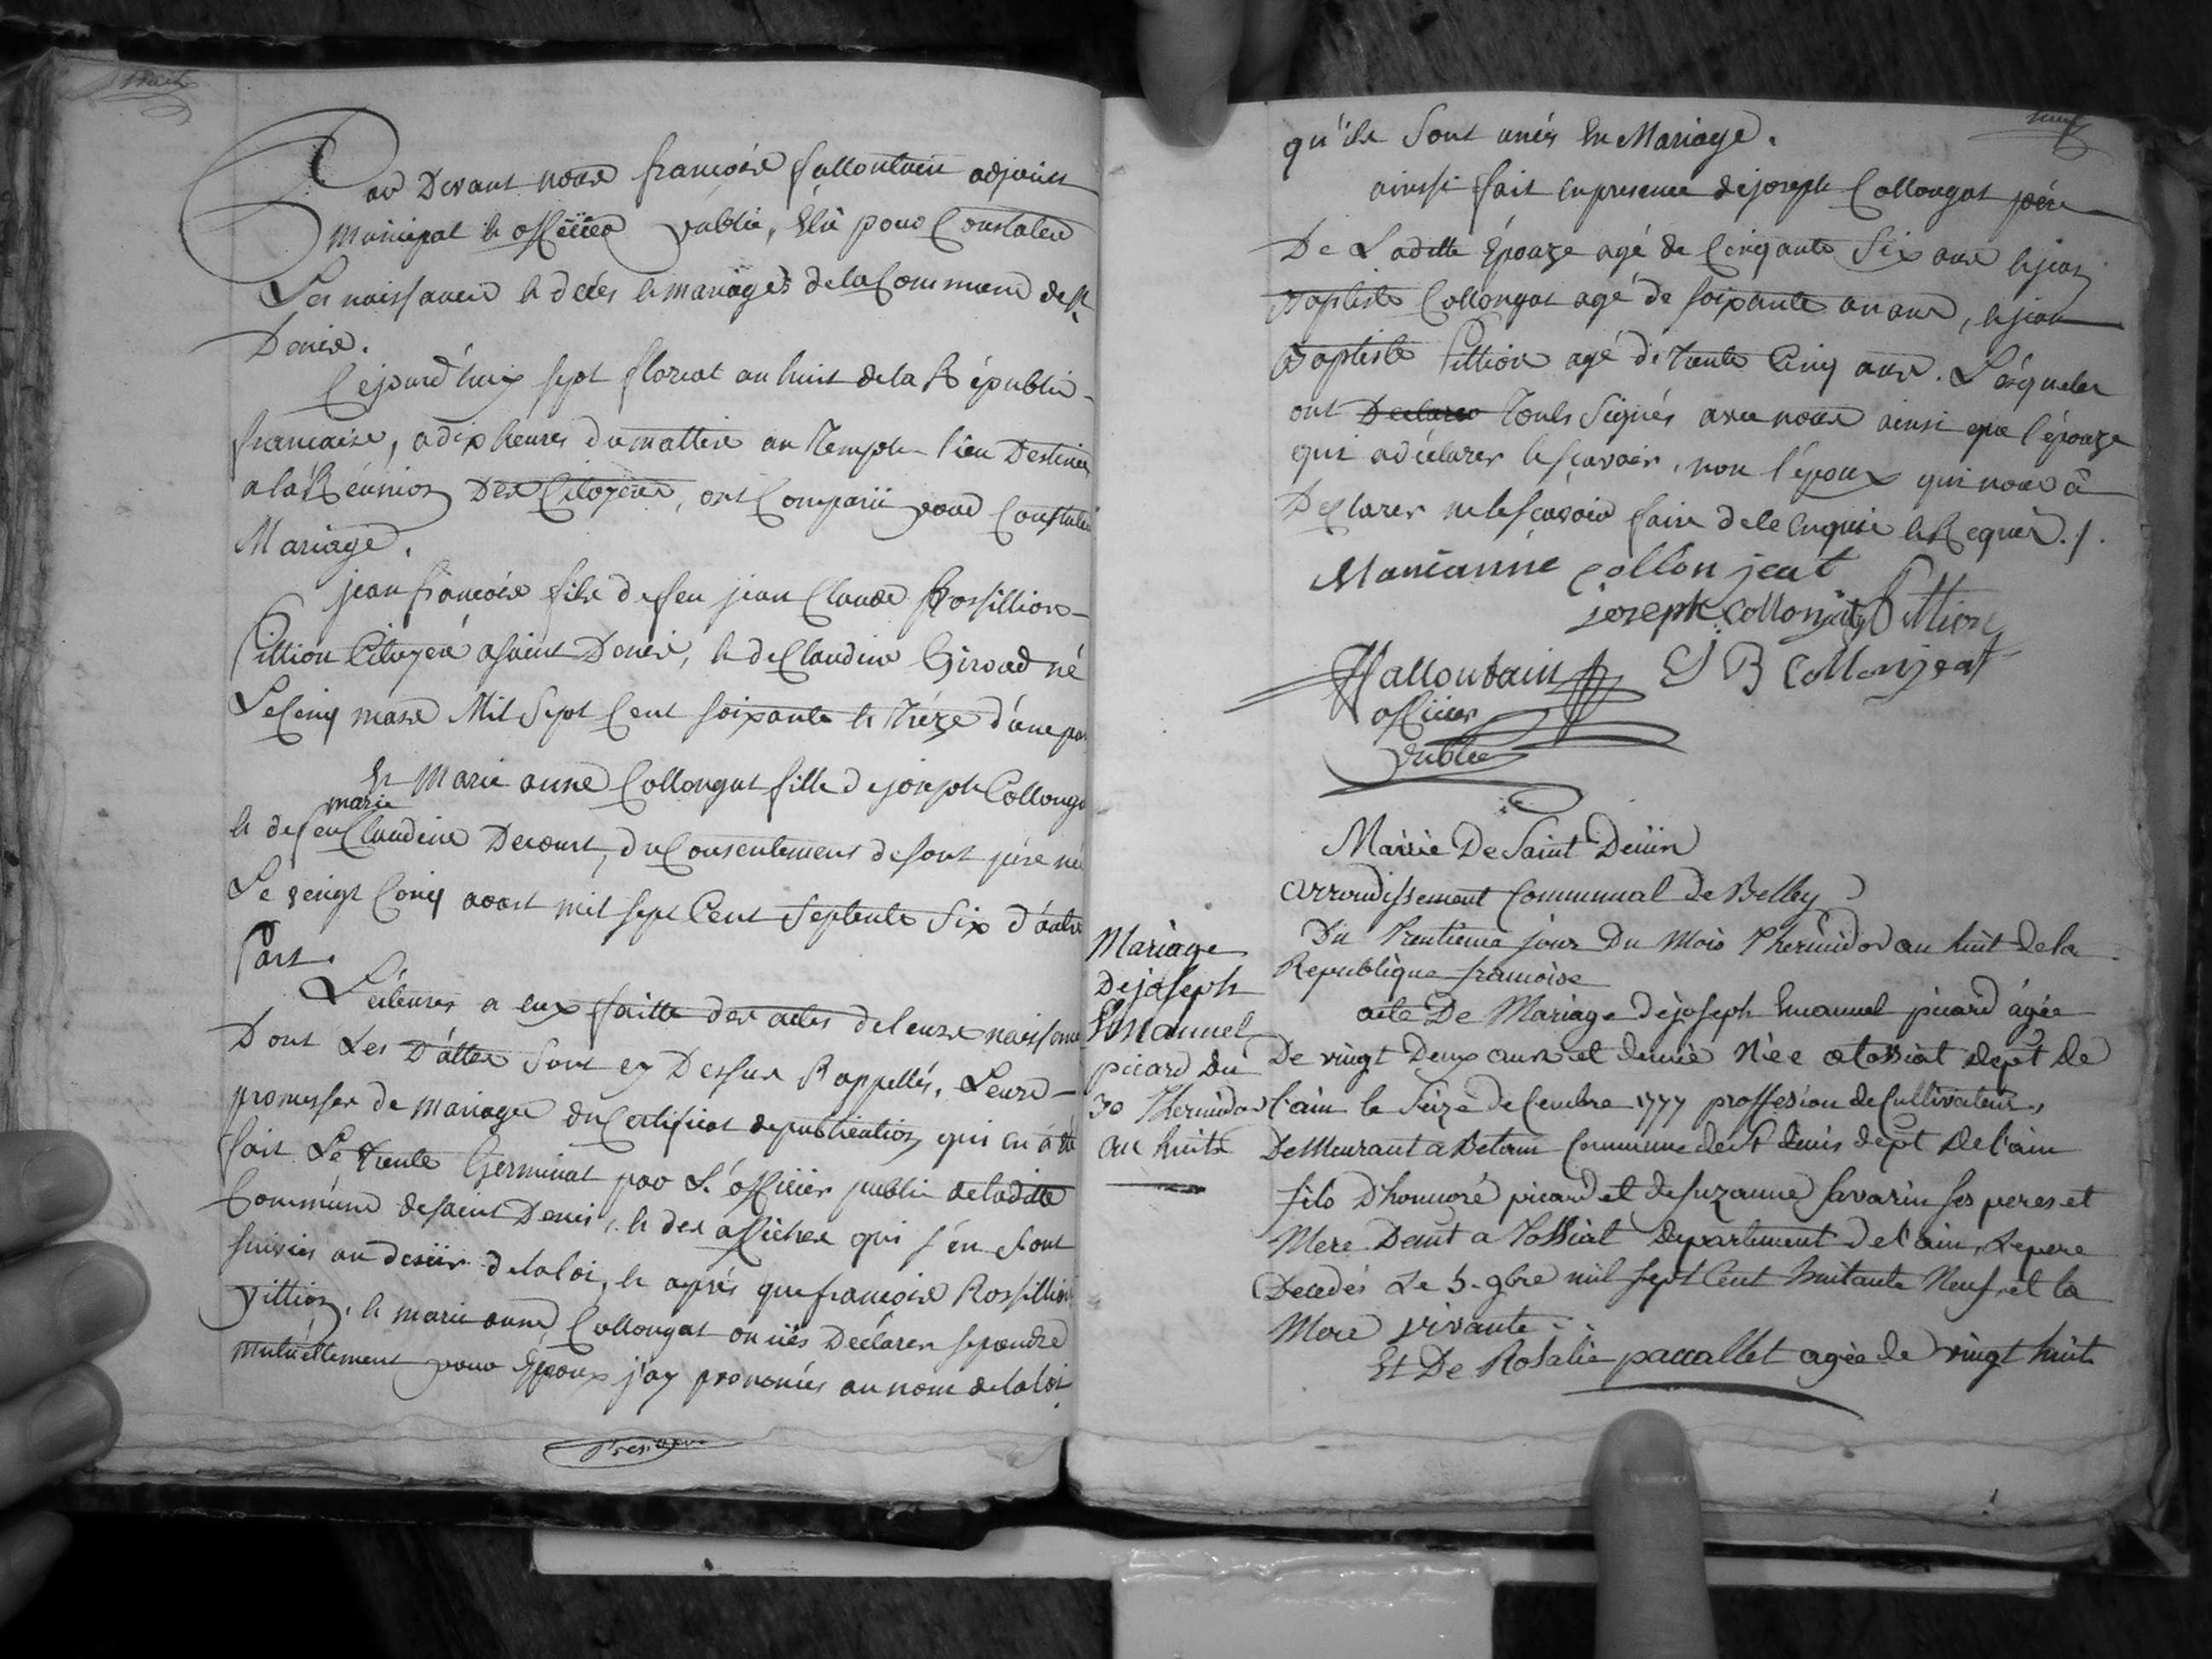 huit
Par Devant nous françois falloutain adjoint
municipal et officier publie, Elû pour Constater
Les naissances et deces et mariages de la Commune de St
Denis.
Cejourd'huiy sept floreal an huit de la Republi-
francaise, a dix heures du mattin au Temple lieu Destiné
a la Réunion Des Citoyens, ont Comparû pour Constater
Mariage.
jean françois fils de feu jean Claude Rossillion-
Pittion Citoyen a saint Denis, et de Claudine Giroud né
Le Cinq mars Mil Sept Cent soixante et Treze d'une par
Et Marie anne Collongat fille de joseph Collonga
marie
et de feu Claudine Decourt, du Consentement de sont pére né
Le veingt Cinq aoust mil sept Cent Septente Six d'autre
Part.
Lecteures a eux faitte des actes de leurs naissance
Dont Les Dattes Sont cy Dessus Rappellés, Leurs-
promesses de mariage du Certificat de publication qui en à été
fait Le Trente Germinal par L'officier public de laditte
Commune de saint Denis, et des affiches qui s'en sont
suivies au desir de la loi, et aprés que françois Rossillion
Pittion, et marie anne Collongat on ües Déclarer se prendre
mutuellement pour Epoux j'ay prononcés au nom de la loi
neuf
qu'ils Sont unés En Mariage.
ainssi fait en presence de joseph Collongat pére
De Laditte Épouze agé de Cinqante Six ans et jean
Baptiste Collongat agé de soixante un ans, et jean
Baptiste Pittion agé de Trente Cinq ans. Lesquels
ont Declares Touts Signés avec nous ainsi que l'épouze
qui a déclarer le sçavoir, non l'époux qui nous à
Declarer ne le sçavoir faire de le Enquis et Requis./.
Marieanne collon jeat
joseph Collonjat Pittion
falloutain J B Collonjeat
officier
Publie
Mairie De Saint Denin
Arrondissement Communal de Belley
Du Trentieme jour Du Mois Thermidor an huit de la
Republique francoise
Mariage
De joseph
Emanuel
picard Du
30 Thermidor
an huite
acte De Mariage de joseph Emanuel picard âgée
De vingt Deux ans et demie Née a tossiat dept de
l'ain le Seize decembre 1777 proffesion de Cultivateur,
Demeurant a Commune de St denis dept De l'ain
fils D'honnoré picard et de suzanne Savarin ses peres et
Mere Demt a Tossiat Departement De l'ain, Le pere
Decedés Le 5. 9bre mil sept Cent huitante Neuf, et la
Mere vivante..
Et De Rosalie paccallet agée de vingt huit